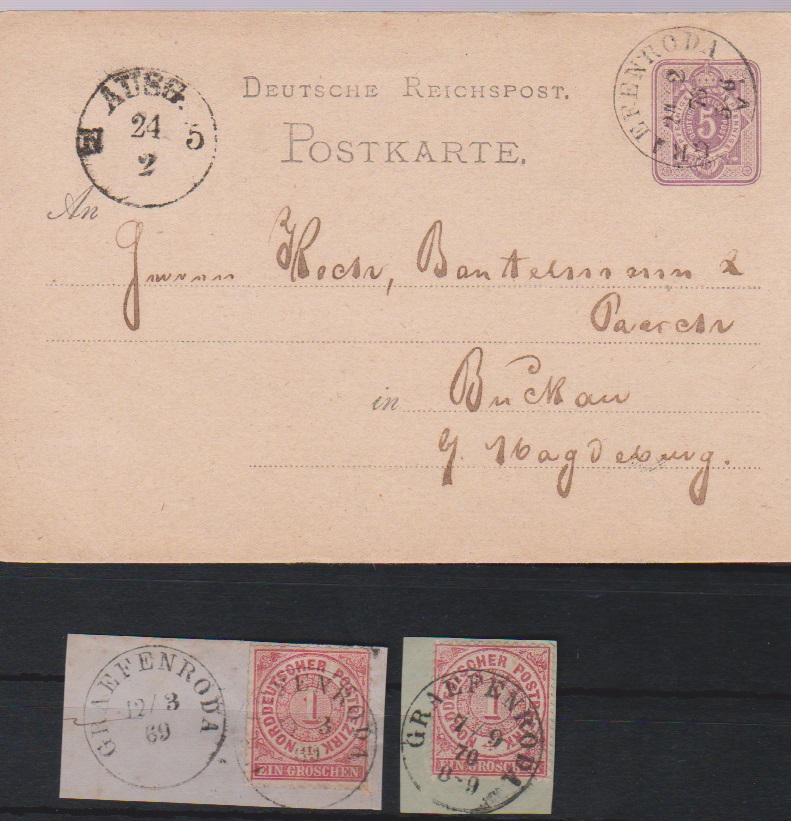 DEUTSCHE REICHSPOST.
POSTKARTE.
AUSG.
24
2
5
GRAEFENRODA
24 2
5
An
Herren Koch, Bantelmann &
Paasch
in Buckau
b/. Magdeburg.
GRAEFENRODA
12/3
69
NORDDEUTSCHER POSTBEZIRK
1
EIN GROSCHEN
GRAEFENRODA
7/9
70
8-9
NORDDEUTSCHER POSTBEZIRK
1
EIN GROSCHEN